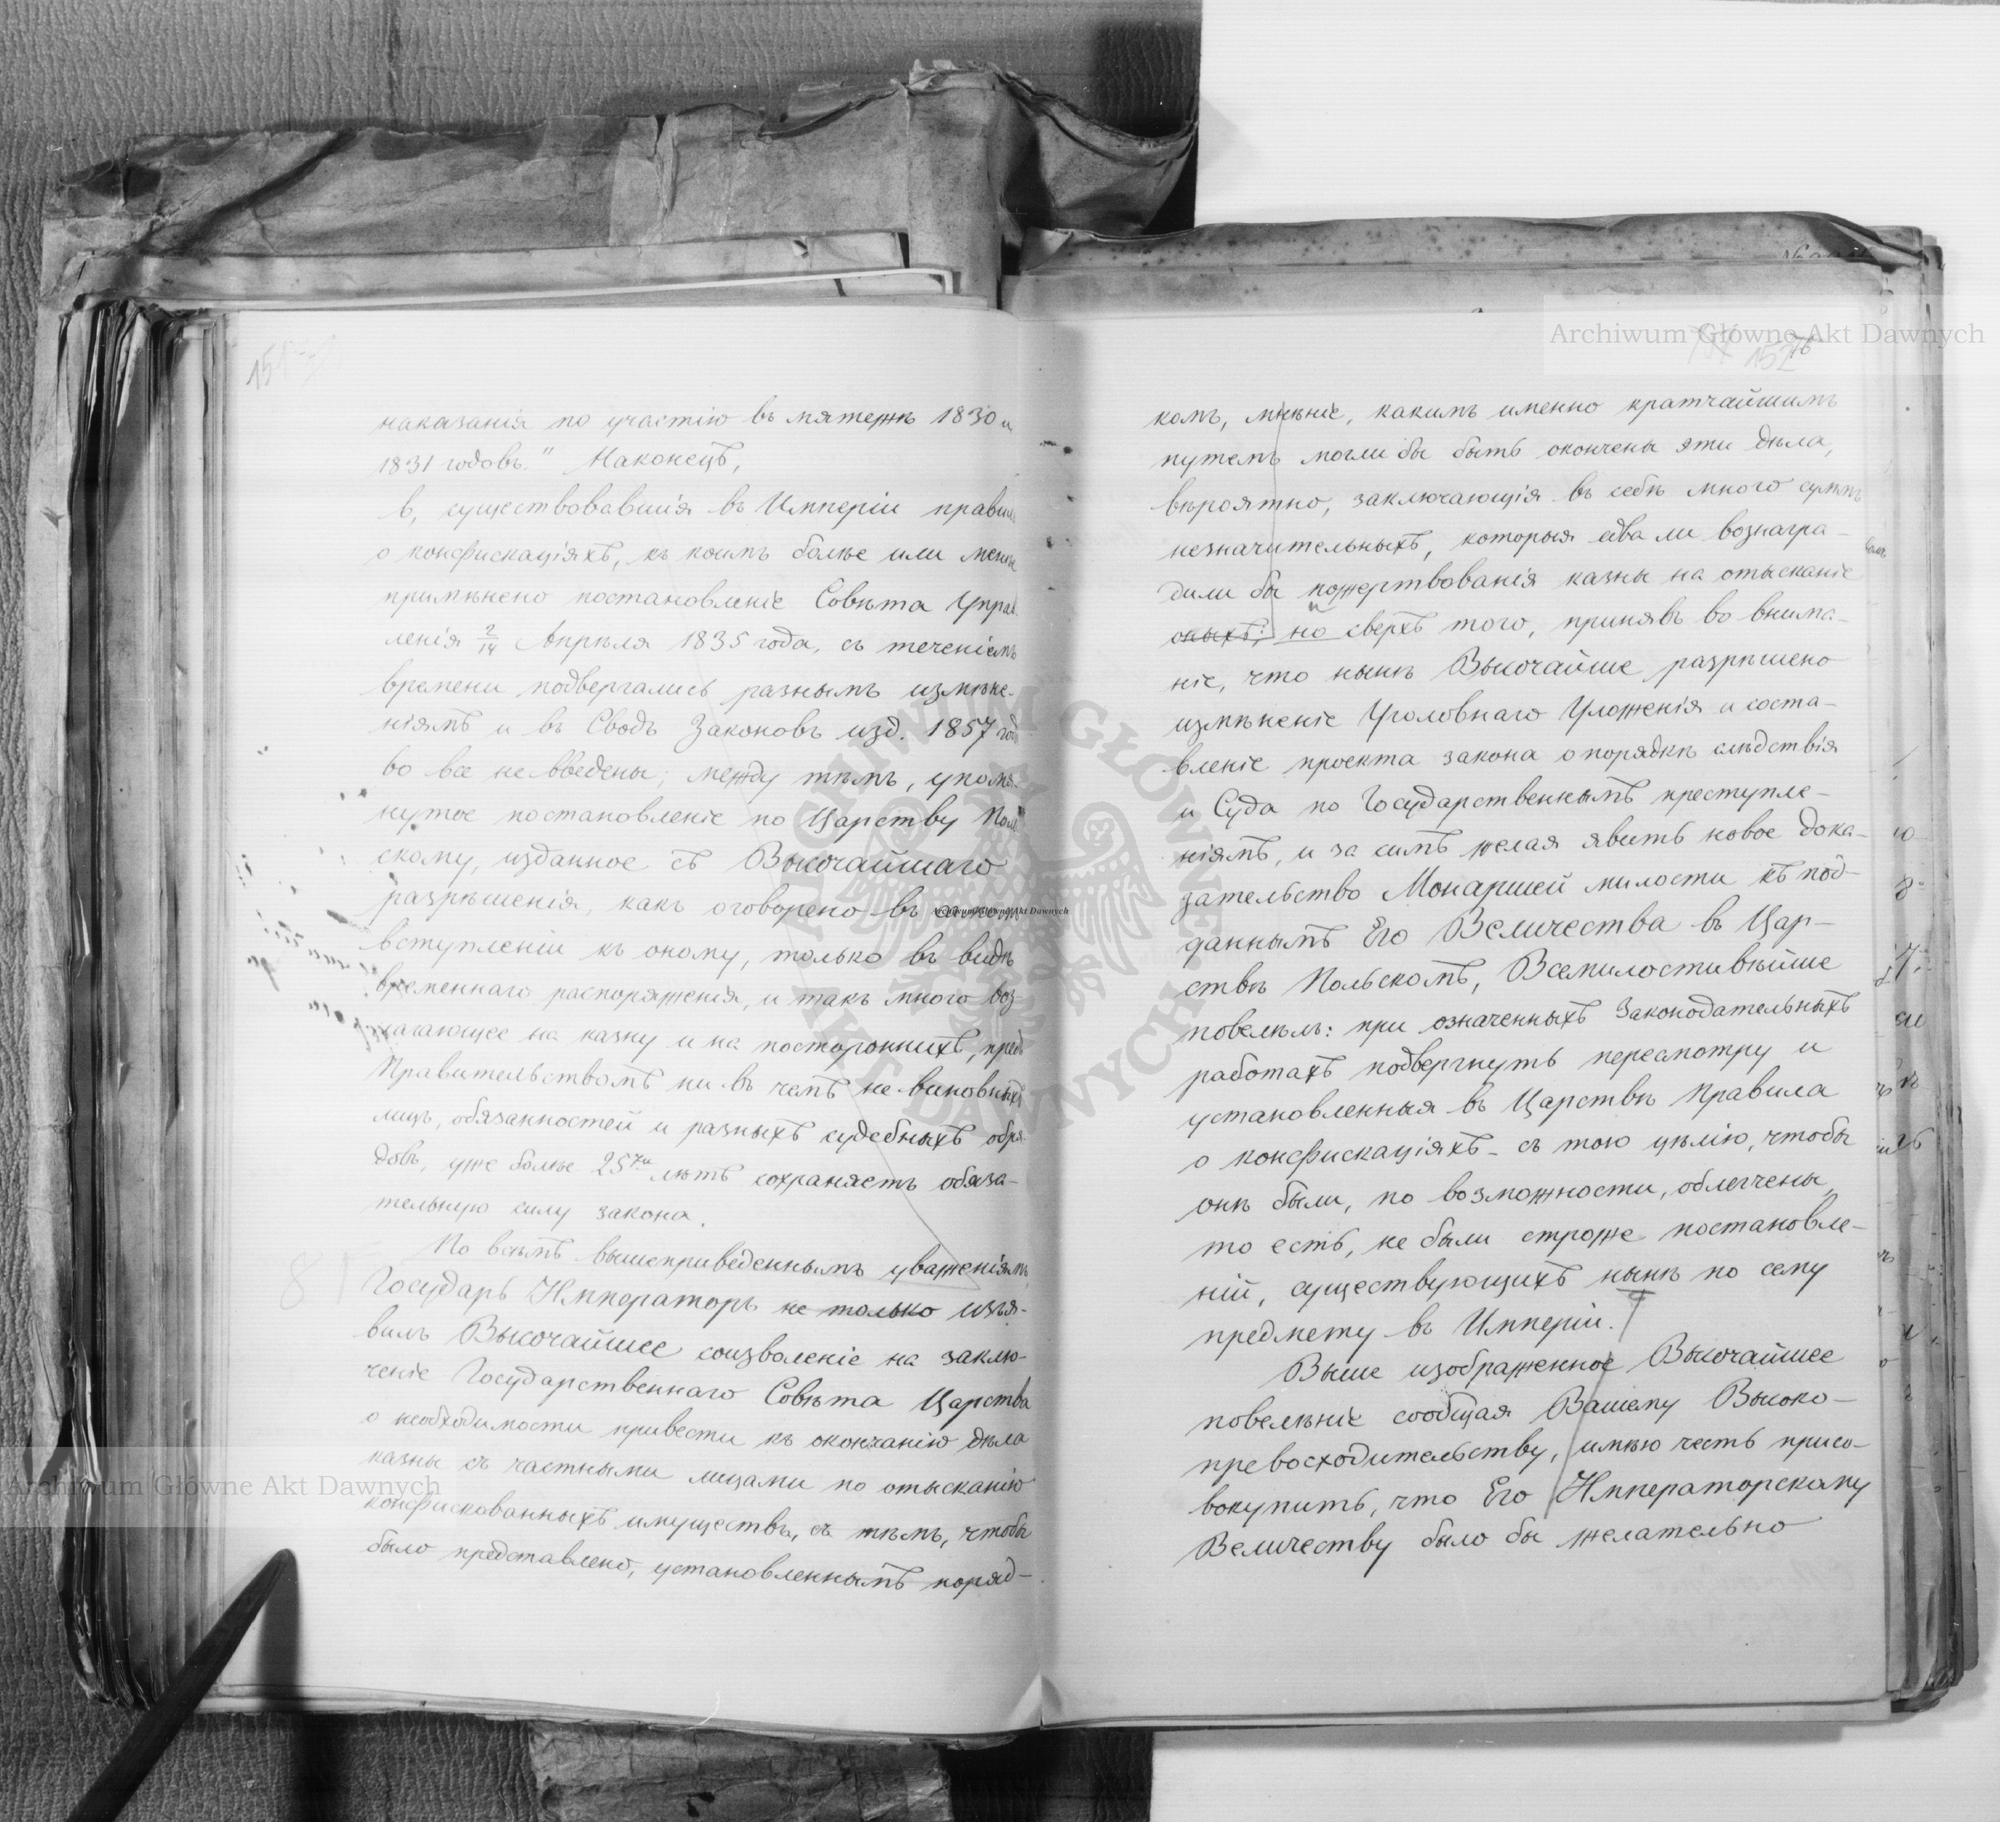 151
наказанія по участію въ мятежѣ 1830 и
1831 годовъ." Наконецъ,
в, существовавшія въ Имперіи правил
о конфискаціяхъ, къ коимъ болѣе или менѣе
примѣнено постановленіе Совѣта Управ
ленія 2/14 Апрѣля 1835 года, съ теченіемъ
времени подвергались разнымъ измѣне-
ніямъ и въ Сводъ Законовъ изд. 1857 год
во все не введены; между тѣмъ, упомя-
нутое постановленіе по Царству Поль
скому, изданное съ Высочайшаго
разрѣшенія, какъ оговорено въ
вступленіи къ оному, только въ видѣ
временнаго распоряженія, и такъ много воз-
лагающее на казну и на постороннихъ, предъ
Правительствомъ ни въ чемъ не виновныхъ
лицъ, обязанностей и разныхъ судебныхъ обря-
довъ, уже болѣе 25ти лѣтъ сохраняетъ обяза-
тельную силу закона.
По всѣмъ вышеприведеннымъ уваженіямъ,
Государь Императоръ не только изъя-
вилъ Высочайшее соизволеніе на заклю-
ченіе Государственнаго Совѣта Царства
о необходимости привести къ окончанію дѣла
казны съ частными лицами по отысканію
конфискованныхъ имуществъ, съ тѣмъ, чтобы
было представлено, установленнымъ поряд-
152
комъ, мнѣніе, какимъ именно кратчайшимъ
путемъ могли бы быть окончены эти дѣла,
вѣроятно, заключающія въ себѣ много суммъ
незначительныхъ, которыя едва ли вознагра-
дили бы пожертвованія казны на отысканіе
оныхъ; но сверхъ того, принявъ во внима-
ніе, что нынѣ Высочайше разрѣшено
измѣненіе Уголовнаго Уложенія и соста-
вленіе проекта закона о порядкѣ слѣдствія
и Суда по Государственнымъ преступле-
ніямъ, и за симъ желая явить новое дока-
зательство Монаршей милости къ под-
даннымъ Его Величества въ Цар-
ствѣ Польскомъ, Всемилостивѣйше
повелѣлъ: при означенныхъ Законодательныхъ
работахъ подвергнуть пересмотру и
установленныя въ Царствѣ Правила
о конфискаціяхъ - съ тою цѣлію, чтобы
онѣ были, по возможности, облегчены,
то есть, не были строже постановле-
ній, существующихъ нынѣ по сему
предмету въ Имперіи.
Выше изображенное Высочайшее
повелѣніе сообщая Вашему Высоко-
превосходительству, имѣю честь присо-
вокупить, что Его Императорскому
Величеству было бы желательно
Archiwum Główne Akt Dawnych
Archiwum Główne Akt Dawnych
Archiwum Główne Akt Dawnych
ARCHIWUM GŁÓWNE AKT DAWNYCH